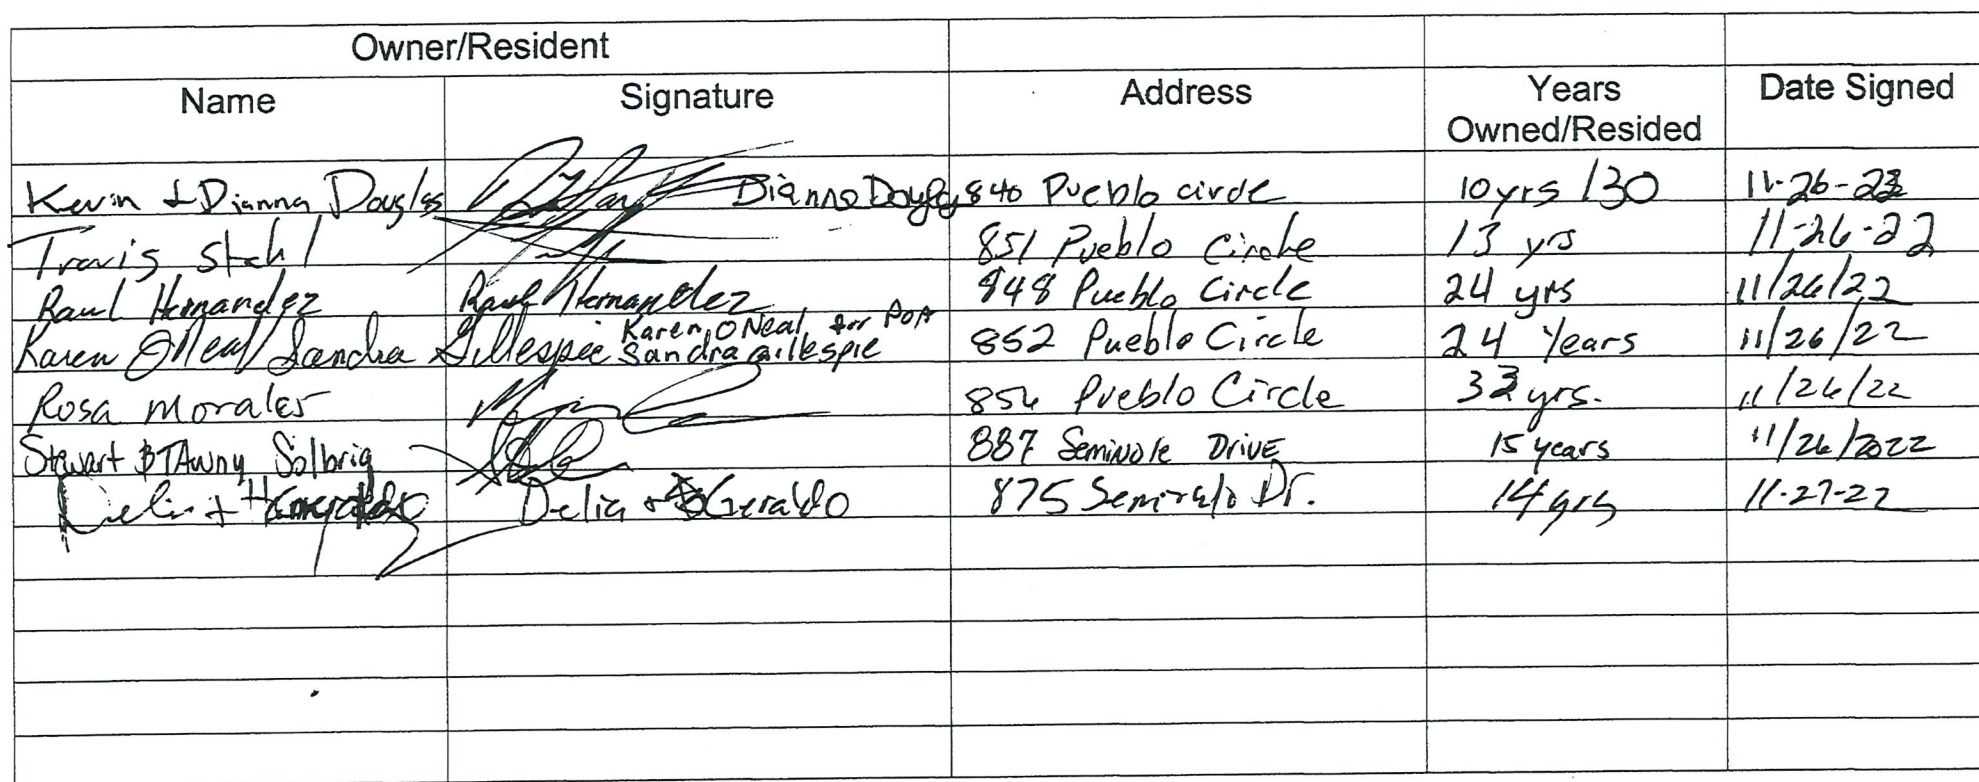 Owner/Resident
Name Signature Address Years Owned/Resided Date Signed
Kevin & Dianna Douglas Dianna Douglas 840 Pueblo circle 10yrs /30 11-26-22
Travis Stahl 851 Pueblo Circle 13 yrs 11-26-22
Raul Hernandez Raul Hernandez 848 Pueblo Circle 24 yrs 11/26/22
Karen O'Neal / Sandra Gillespie Karen O'Neal for POA Sandra Gillespie 852 Pueblo Circle 24 Years 11/26/22
Rosa Morales 856 Pueblo Circle yrs. 11/26/22
Stewart & TAwny Solbrig 887 Seminole DRIVE 15 years 11/26/2022
Delia + Delia + Geraldo 875 Dr. 14 yrs 11-27-22